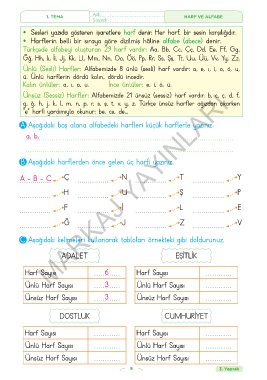 1. TEMA
HARF VE ALFABE
• Sesleri yazıda gösteren işaretlere harf denir. Her harf, bir sesin karşılığıdır.
• Harflerin belli bir sıraya göre dizilmiş hâline alfabe (abece) denir.
Türkçede alfabeyi oluşturan 29 harf vardır: Aa, Bb, Cc, Çç, Dd, Ee, Ff, Gg,
Ğğ, Hh, Iı, İi, Jj, Kk, Ll, Mm, Nn, Oo, Öö, Pp, Rr, Ss, Şş, Tt, Uu, Üü, Vv, Yy, Zz.
Ünlü (Sesli) Harfler: Alfabemizde 8 ünlü (sesli) harf vardır: a, e, ı, i, o, ö, u,
ü. Ünlü harflerin dördü kalın, dördü incedir.
Kalın ünlüler: a, ı, o, u. İnce ünlüler: e, i, ö, ü.
Ünsüz (Sessiz) Harfler: Alfabemizde 21 ünsüz (sessiz) harf vardır: b, c, ç, d, f,
g, ğ, h, j, k, l, m, n, p, r, s, ş, t, v, y, z. Türkçe ünsüz harfler ağızdan çıkarken
harf yardımıyla okunur: be, ce, de...
A Aşağıdaki boş alana alfabedeki harfleri küçük harflerle yazınız.
a, b,
B Aşağıdaki harflerden önce gelen üç harfi yazınız.
A - B - C C N T Y
H U Ş P
J L F E
Ğ J Z V
C Aşağıdaki kelimeleri kullanarak tabloları örnekteki gibi doldurunuz.
ADALET EŞİTLİK
Harf Sayısı 6 Harf Sayısı
Ünlü Harf Sayısı 3 Ünlü Harf Sayısı
Ünsüz Harf Sayısı 3 Ünsüz Harf Sayısı
DOSTLUK CUMHURİYET
Harf Sayısı Harf Sayısı
Ünlü Harf Sayısı Ünlü Harf Sayısı
Ünsüz Harf Sayısı Ünsüz Harf Sayısı
9
MARKAJ YAYINLARI